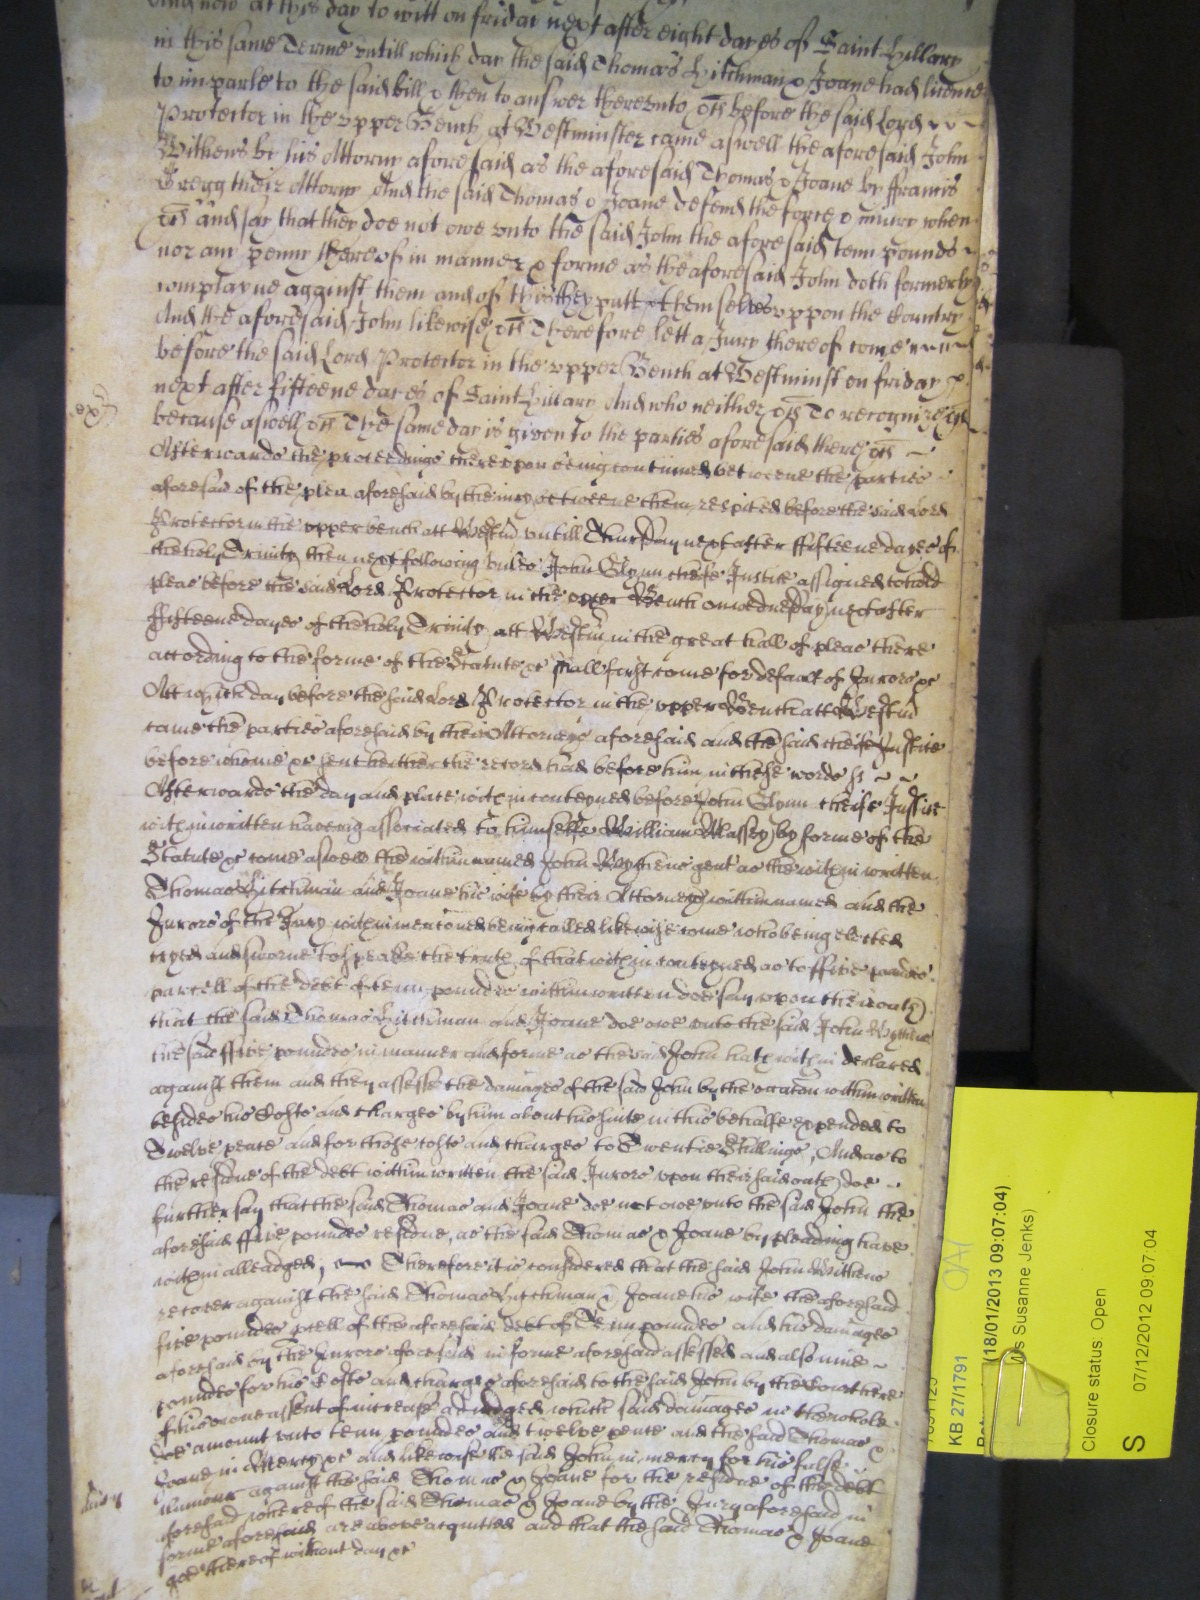 And now at this day to witt on friday next after eight dayes of Saint Hillary
in this same Terme untill which day the said Thomas Hitchman & Joane had licence
to imparle to the said bill & then to answer thereunto &c before the said Lord
Protector in the upper Bench at Westminster came aswell the aforesaid John
Withens by his Attorny aforesaid as the aforesaid Thomas & Joane by ffrancis
Gregg their Attorny And the said Thomas & Joane defend the force & iniury when
&c and say that they doe not owe unto the said John the aforesaid tenn pounds
nor any penny thereof in manner & forme as the aforesaid John doth formerly
complayne against them and of this they putt themselves uppon the Country
And the aforesaid John likewise &c Therefore lett a Jury thereof come
before the said Lord Protector in the upper Bench at Westminst on friday
next after fifteene dayes of Saint Hillary And who neither &c To recognize &c
because aswell &c The same day is given to the parties aforesaid there &c
Afterwards the proceedings thereupon being continued betweene the parties
aforesaid of the plea aforesaid by the iury betweene them respited before the said Lord
Protector in the upper bench att Westm untill Thursday next after ffifteene dayes of
the holy Trinity then next following unles John Glynn cheife Justice assigned to hold
pleas before the said Lord Protector in the upper Bench on wednesday next after
ffifteene dayes of the holy Trinity att Westm in the great hall of pleas there
according to the forme of the Statute &c shall first come for default of Jurors &c
Att which day before the said Lord Protector in the upper Bench att Westm
came the parties aforesaid by their Attorneys aforesaid and the said cheife Justice
before whome &c sent hether the record had before him in these words ss
Afterwards the day and place within conteyned before John Glynn cheife Justice
within written haveing associated to himselfe William Massey by forme of the
Statute &c come aswell the within named John Wythens gent as the within written
Thomas Hitchman and Joane his wife by their Attorneys within named and the
Jurors of the Jury within mencioned being called likewise come who being elected
tryed and sworne to speake the truth of that within conteyned as to ffive pounds
parcell of the debt of tenn pounds within written doe say upon their oath
that the said Thomas Hitchman and Joane doe owe unto the said John Wythens
the said ffive pounds in manner and forme as the said John hath within declared
against them and they assesse the damages of the said John by the occacon within written
besides his Costs and charges by him about his suite in this behalfe expended to
Twelve pence and for those costs and charges to Twentie Shillings, And as to
the residue of the debt within written the said Jurors upon their said oath doe
further say that the said Thomas and Joane doe not owe unto the said John the
aforesaid ffive pounds residue, as the said Thomas & Joane by pleading have
within alleadged, Therefore it is considered that the said John Withens
recover against the said Thomas Hitchman & Joane his wife the aforesaid
five pounds pcell of the aforesaid debt of Tenn pounds and his damages
aforesaid by the Jurors aforesaid in forme aforesaid assessed and also nine
pounds for his Costs and charges aforesaid to the said John by the Court here
of his owne assent of increase adiudged which said damages in the whole
doe amount unto tenn pounds and twelve pence and the said Thomas &
Joane in Mercy &c and likewise the said John in mercy for his false
clamour against the said Thomas & Joane for the residue of the debt
aforesaid whereof the said Thomas & Joane by the Jury aforesaid in
forme aforesaid are above acquitted and that the said Thomas & Joane
goe thereof without day &c
mercy
KB 27/1791
(18/01/2013 09:07:04)
Ms Susanne Jenks)
Closure status: Open
S
07/12/2012 09:07:04